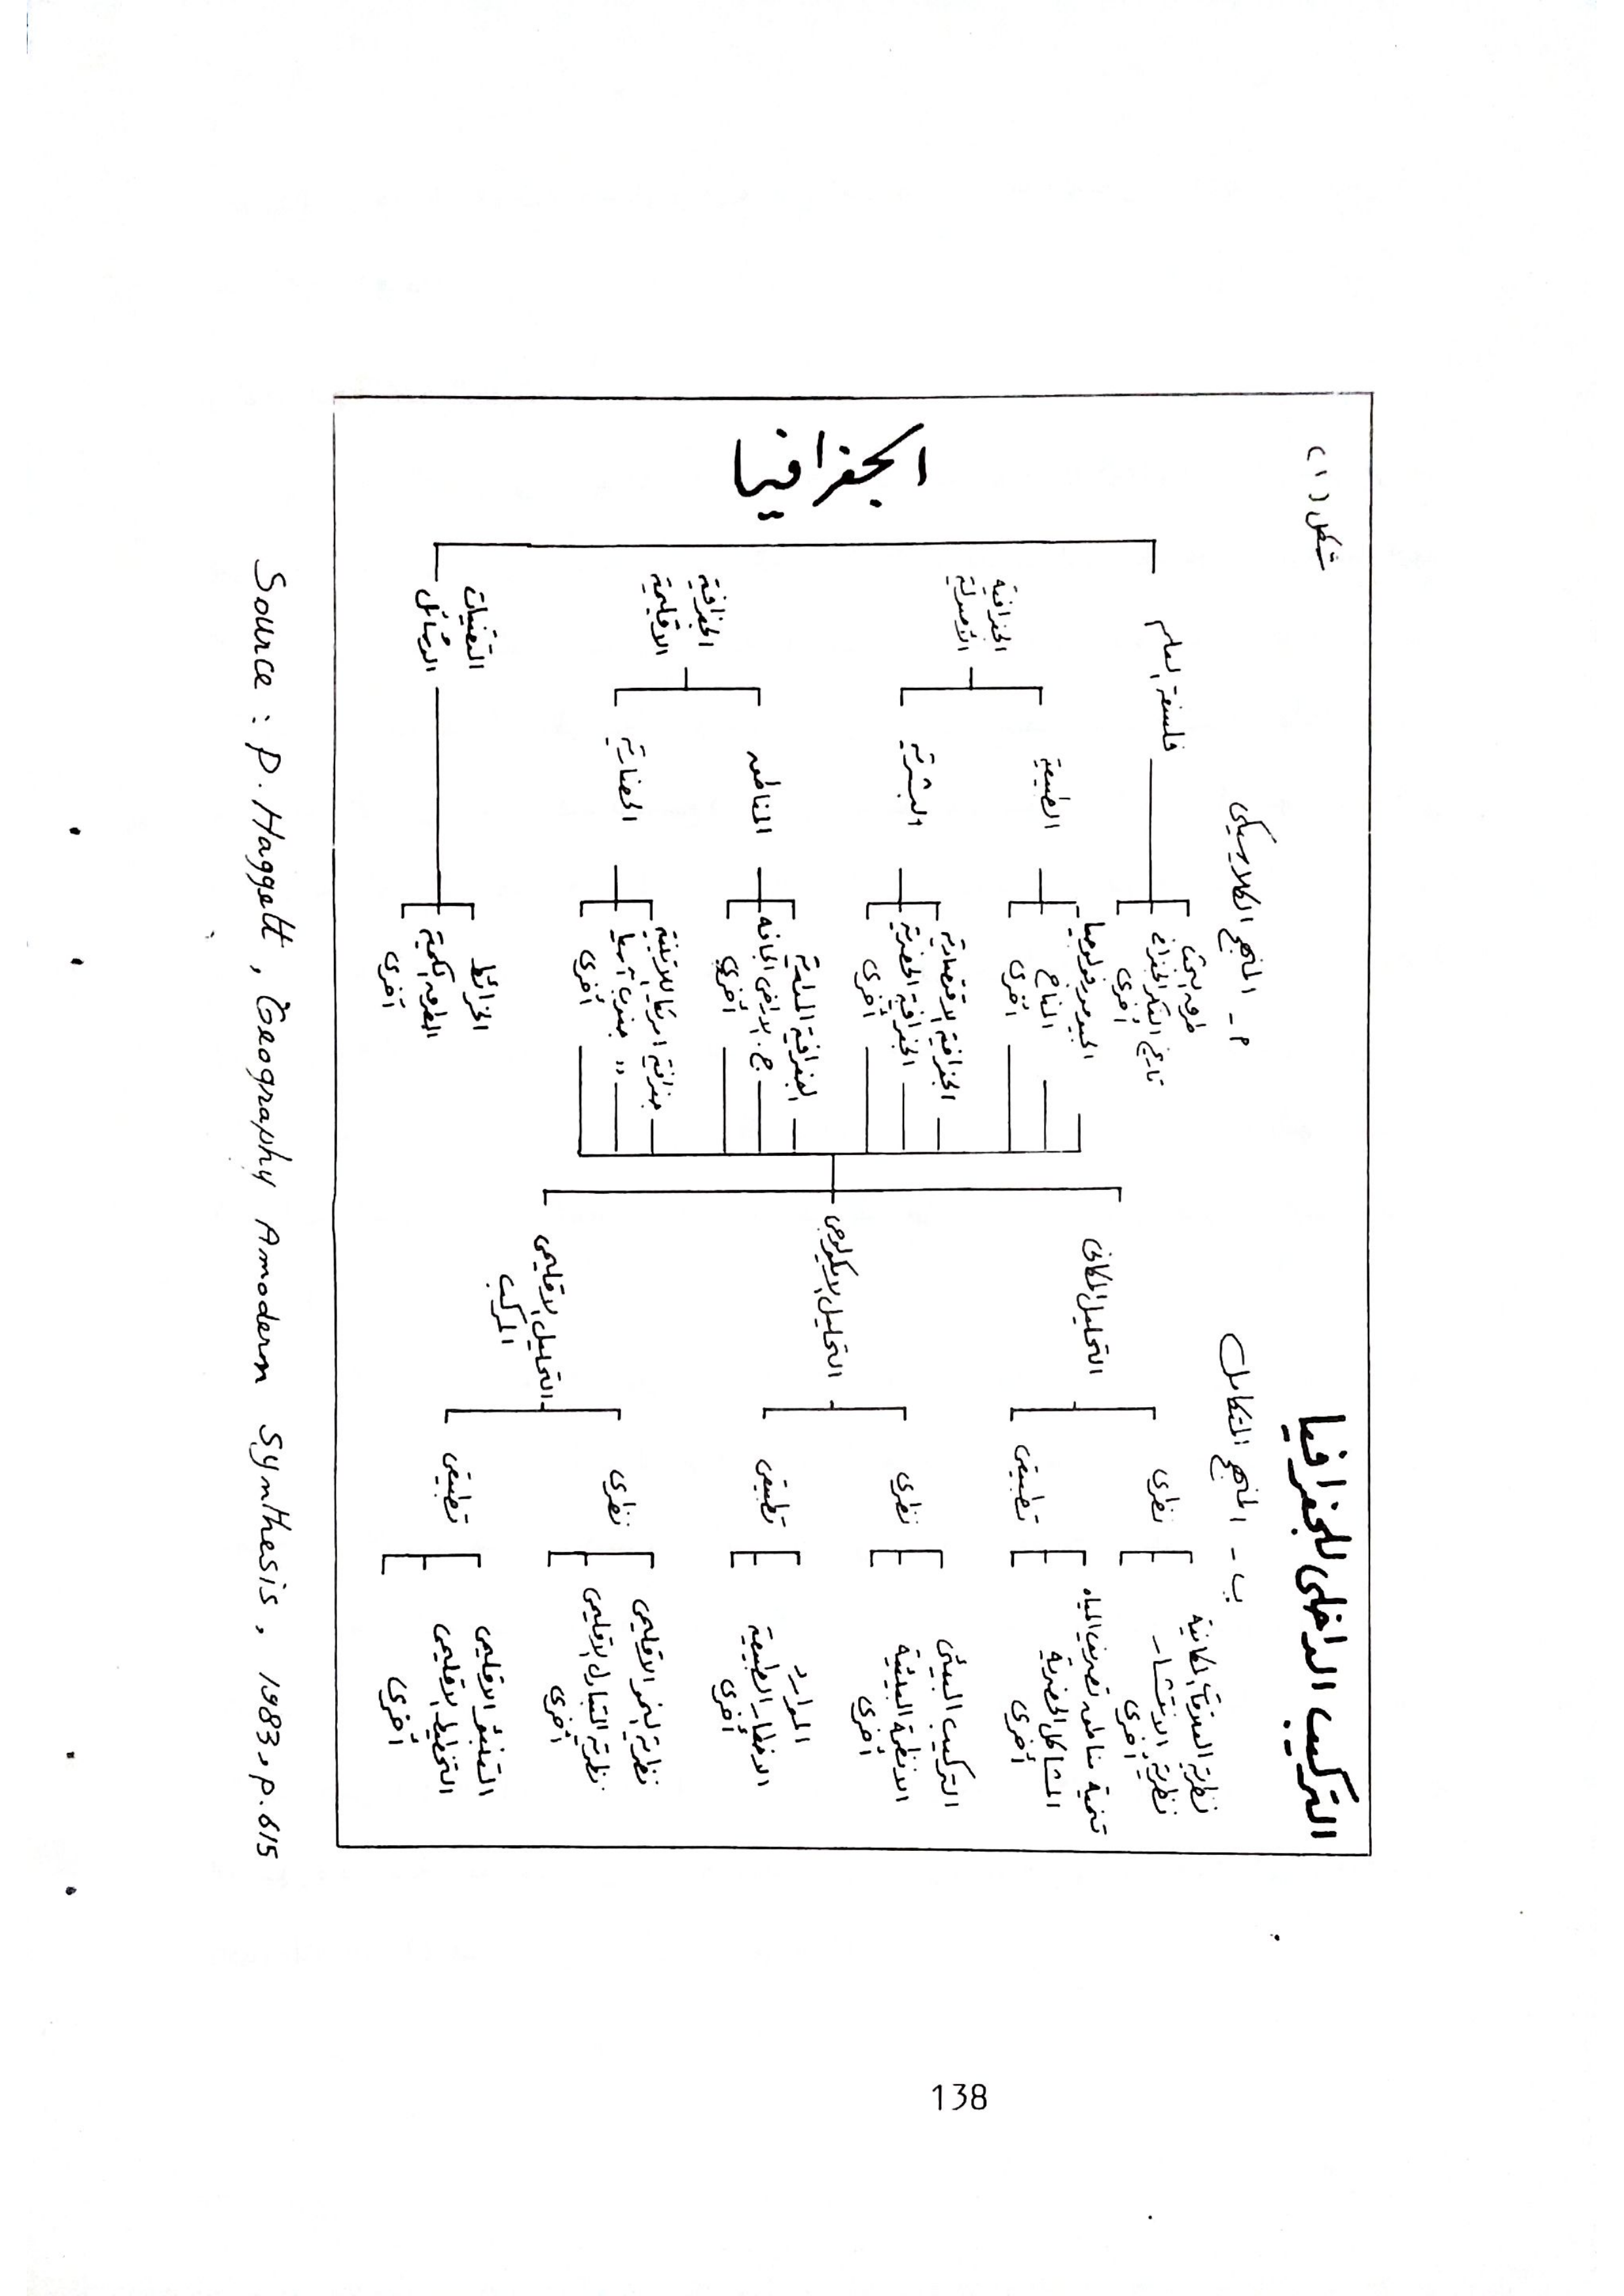 شكل (١)
التركيب الداخلى للجغرافيا
أ - المنهج الكلاسيكى
ب - المنهج المتكامل
الجغرافيا
فلسفة العلم
طرق البحث
تاريخ الفكر الجغرافى
أخرى
الجغرافية
الأصولية
الطبيعية
الجيومورفولوجيا
المناخ
أخرى
البشرية
الجغرافية الاقتصادية
الجغرافية الحضرية
أخرى
الجغرافية
الاقليمية
المناطق
الجغرافية المدارية
ج. الاراضى الجافه
أخرى
الحضارية
جغرافية امريكا اللاتينية
" جنوب آسيا
أخرى
التقنيات
الوسائل
الخرائط
الطرق الكمية
أخرى
التحليل المكانى
نظرى
نظرية العلاقات المكانية
نظرية الانتشار
أخرى
تطبيقى
تنمية مناطق تصريف المياه
المشاكل الحضرية
أخرى
التحليل الايكولوجى
نظرى
التركيب البيئى
الانظمة البيئية
أخرى
تطبيقى
الموارد
الاخطار الطبيعية
أخرى
التحليل الاقليمى
المركب
نظرى
نظرية النمو الاقليمى
نظرية التبادل الاقليمى
أخرى
تطبيقى
التنبؤ الاقليمى
التخطيط الاقليمى
أخرى
Source : P. Haggett , Geography Amodern Synthesis , 1983, p. 615
138